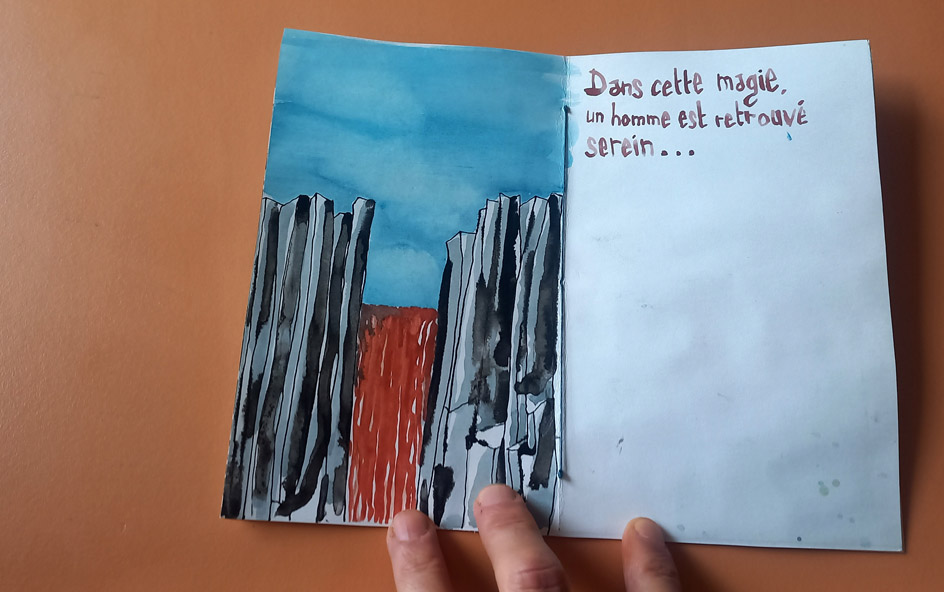 Dans cette magie,
un homme est retrouvé
serein...